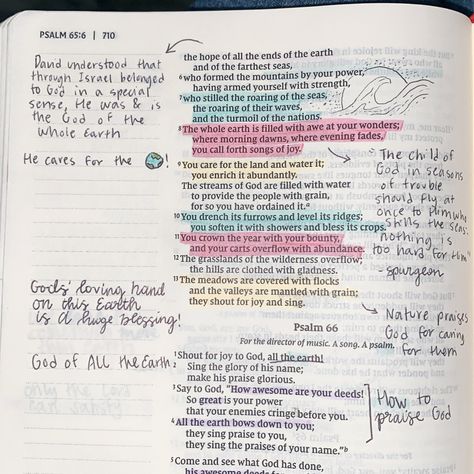 PSALM 65:6 | 710
David understood that
through Israel belonged
to God in a special
sense, He was & is
the God of the
whole Earth
He cares for the 🌎!
Gods' loving hand
on this Earth
is a huge blessing!
God of All the Earth
the hope of all the ends of the earth
and of the farthest seas,
6 who formed the mountains by your power,
having armed yourself with strength,
7 who stilled the roaring of the seas,
the roaring of their waves,
and the turmoil of the nations.
8 The whole earth is filled with awe at your wonders;
where morning dawns, where evening fades,
you call forth songs of joy.
9 You care for the land and water it;
you enrich it abundantly.
The streams of God are filled with water
to provide the people with grain,
for so you have ordained it.a
10 You drench its furrows and level its ridges;
you soften it with showers and bless its crops.
11 You crown the year with your bounty,
and your carts overflow with abundance.
12 The grasslands of the wilderness overflow;
the hills are clothed with gladness.
13 The meadows are covered with flocks
and the valleys are mantled with grain;
they shout for joy and sing.
Psalm 66
For the director of music. A song. A psalm.
1 Shout for joy to God, all the earth!
2 Sing the glory of his name;
make his praise glorious.
3 Say to God, "How awesome are your deeds!
So great is your power
that your enemies cringe before you.
4 All the earth bows down to you;
they sing praise to you,
they sing the praises of your name."b
5 Come and see what God has done,
his awesome deeds for
"The child of
God in seasons
of trouble
should fly at
once to Him who
stills the seas:
nothing is
too hard for Him"
- spurgeon
Nature praises
God for caring
for them
How to
praise God